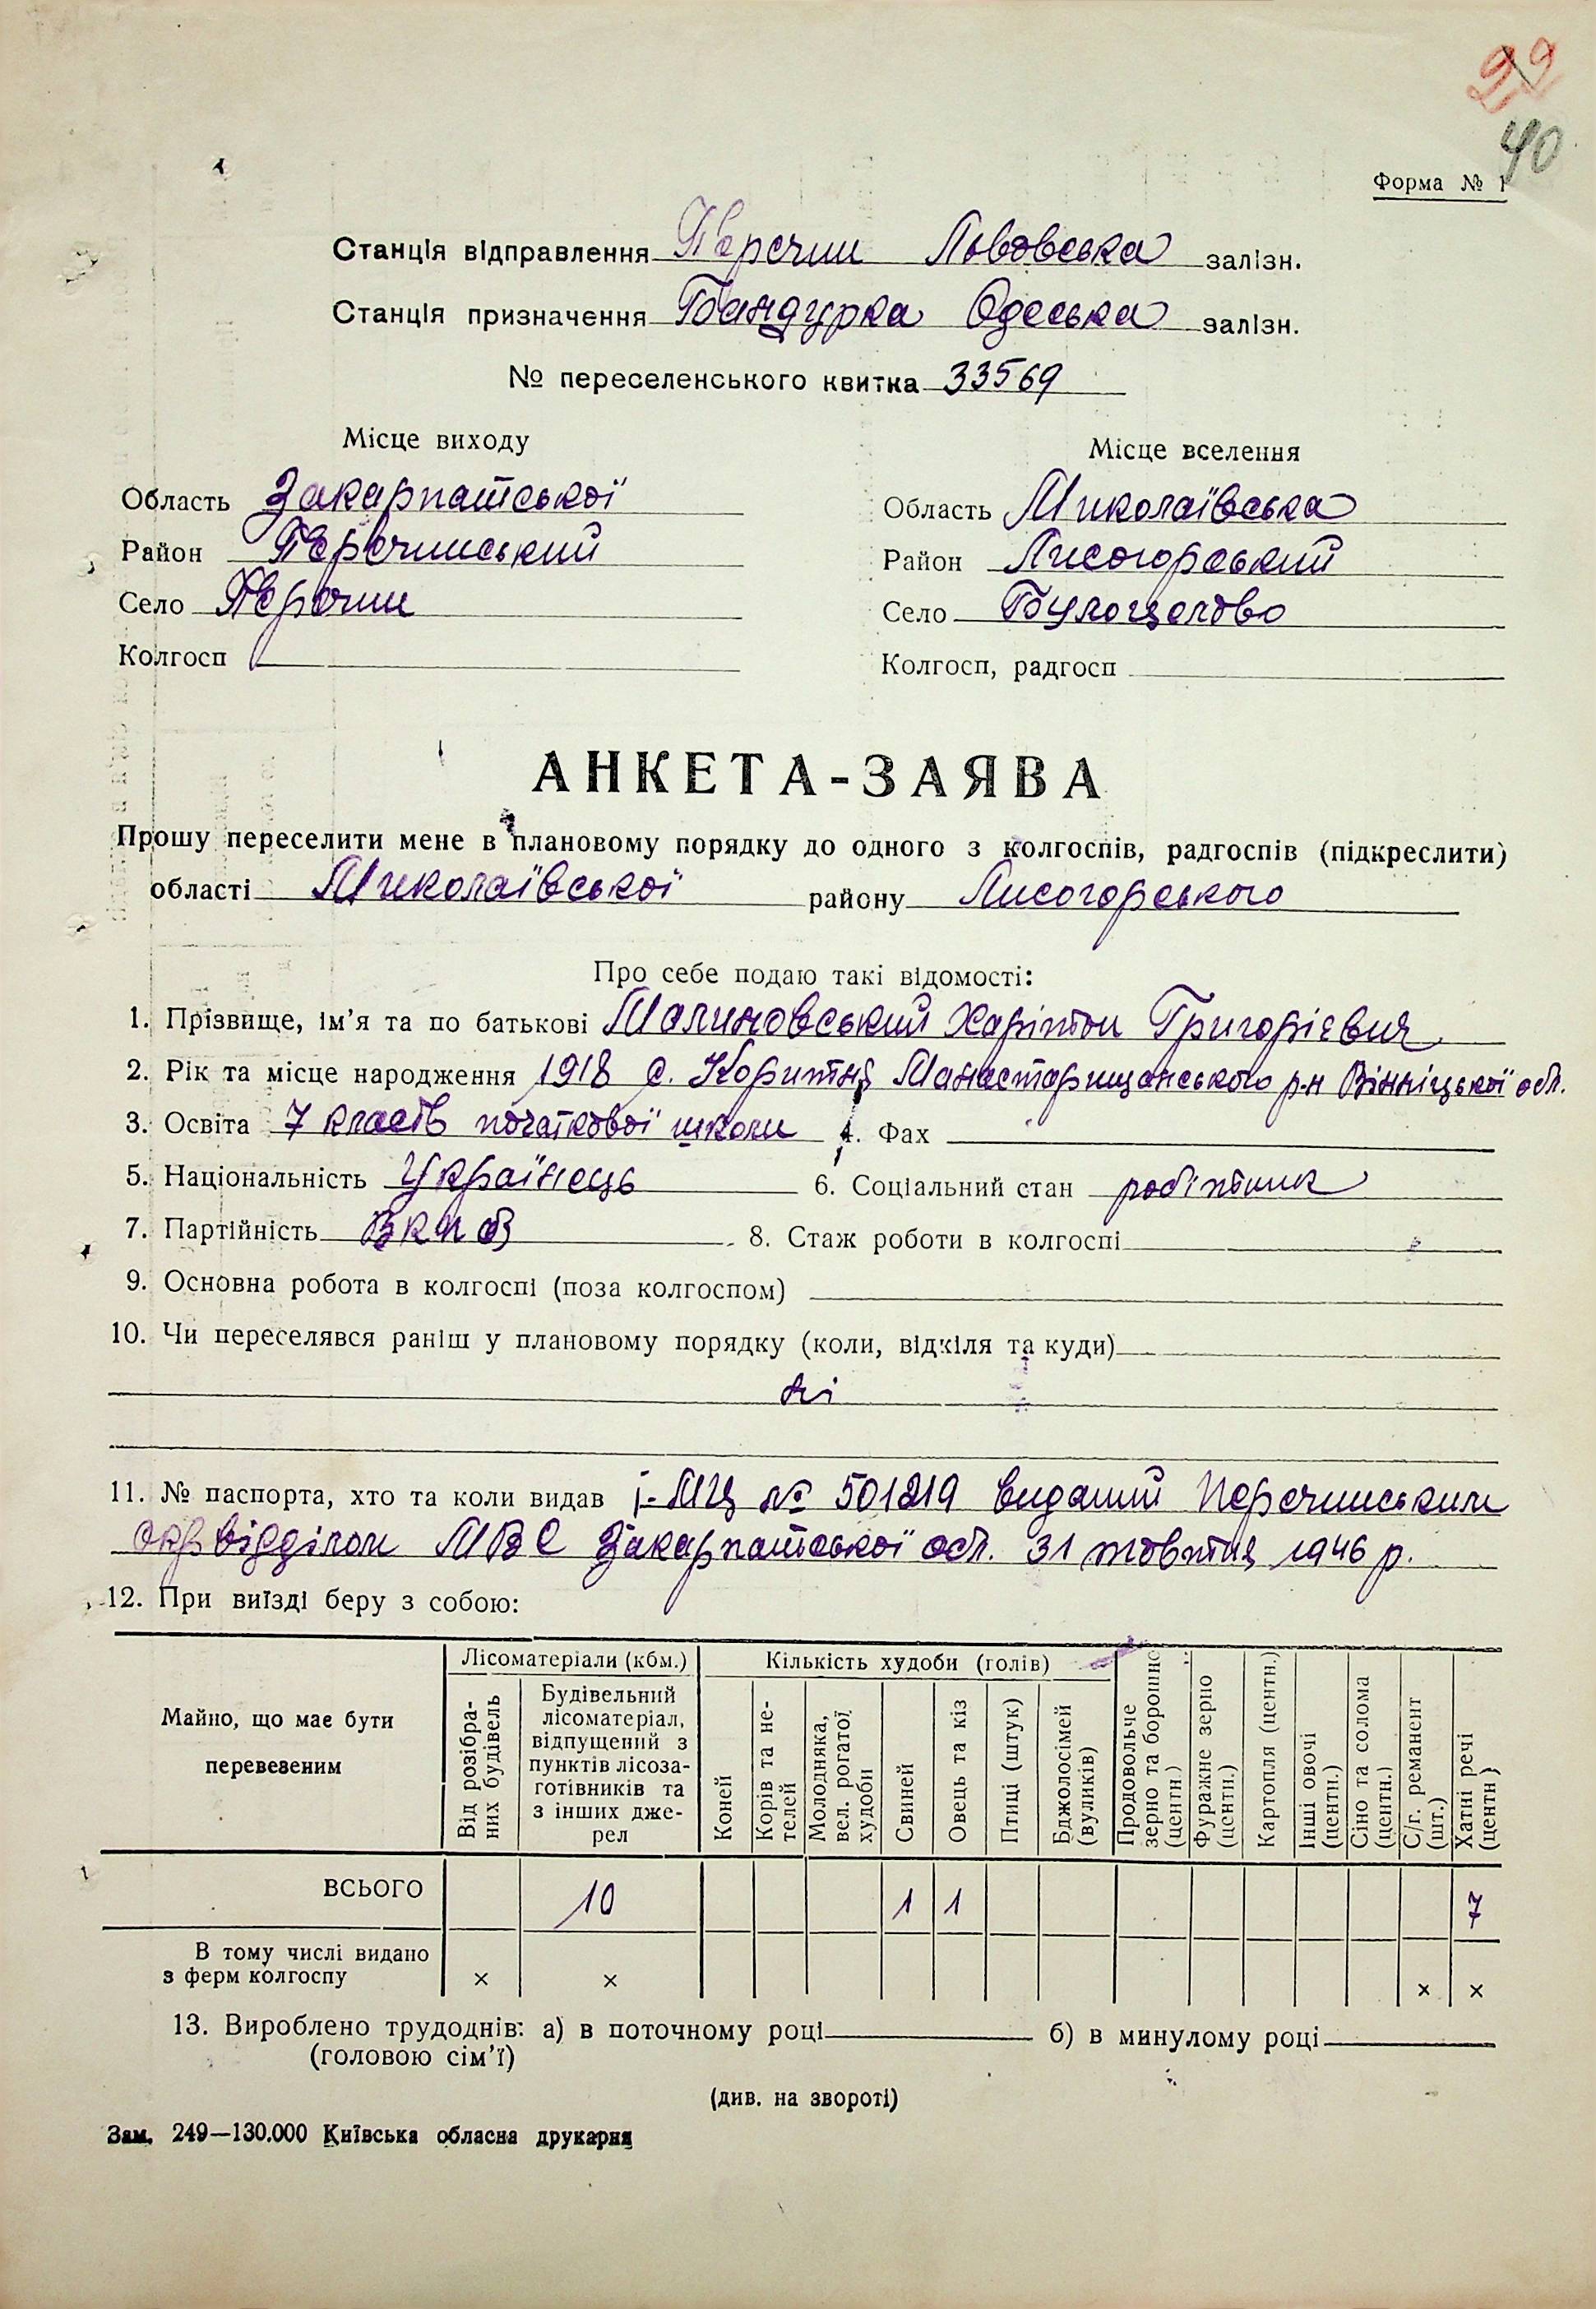 29
40
Форма № 1
Станція відправлення Перечин Львовська залізн.
Станція призначення Бандурка Одеська залізн.
№ переселенського квитка 33569
Місце виходу
Область Закарпатської
Район Перечинський
Село Перечин
Колгосп
Місце вселення
Область Миколаївська
Район Лисогорський
Село
Колгосп, радгосп
АНКЕТА-ЗАЯВА
Прошу переселити мене в плановому порядку до одного з колгоспів, радгоспів (підкреслити)
області Миколаївської району Лисогорського
Про себе подаю такі відомості:
1. Прізвище, ім’я та по батькові Малиновський Харітон Григорієвич
2. Рік та місце народження 1918 с. Коритня Манастарищанського р-н Вінніцької обл.
3. Освіта 7 класів початкової школи 4. Фах
5. Національність Українець 6. Соціальний стан робітник
7. Партійність ВКПб 8. Стаж роботи в колгоспі
9. Основна робота в колгоспі (поза колгоспом)
10. Чи переселявся раніш у плановому порядку (коли, відкіля та куди)
ні
11. № паспорта, хто та коли видав І-МЦ № 501219 виданий Перечинським
окрвідділом МВС Закарпатської обл. 31 жовтня 1946 р.
12. При виїзді беру з собою:
Майно, що має бути
перевезеним
Лісоматеріали (кбм.)
Від розібра-
них будівель
Будівельний
лісоматеріал,
відпущений з
пунктів лісоза-
готівників та
з інших дже-
рел
Кількість худоби (голів)
Коней
Корів та не-
телей
Молодняка,
вел. рогатої
худоби
Свиней
Овець та кіз
Птиці (штук)
Бджолосімей
(вуликів)
Продовольче
зерно та борошно
(центн.)
Фуражне зерно
(центн.)
Картопля (центн.)
Інші овочі
(центн.)
Сіно та солома
(центн.)
С/г. реманент
(шт.)
Хатні речі
(центн)
ВСЬОГО 10 1 1 7
В тому числі видано
з ферм колгоспу × × × ×
13. Вироблено трудоднів: а) в поточному році б) в минулому році
(головою сім’ї)
(див. на звороті)
Зам. 249—130.000 Київська обласна друкарня